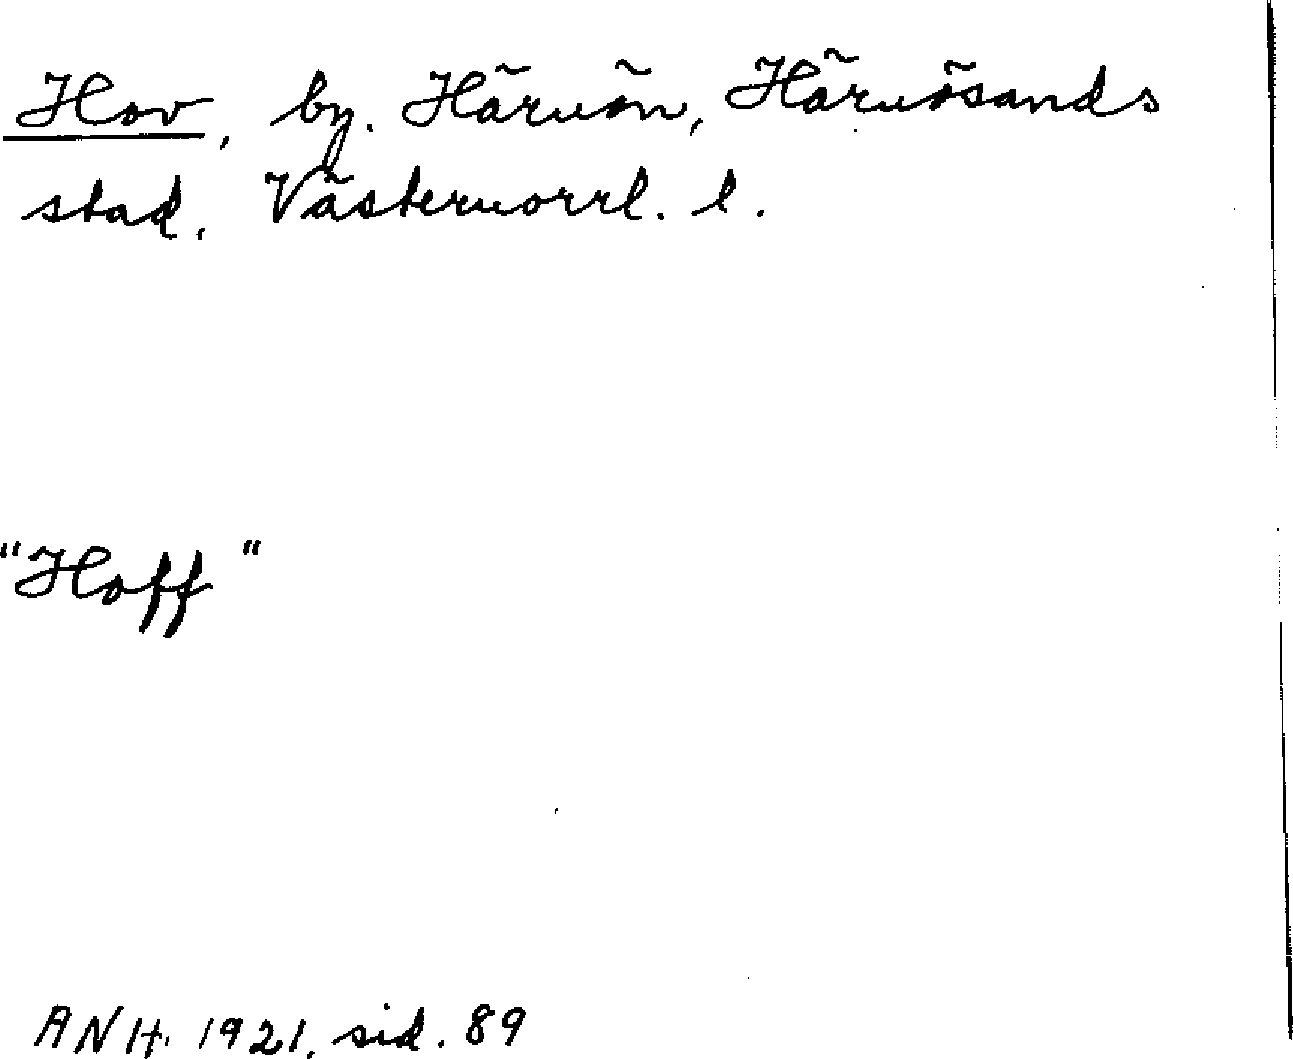 Hov, by. Härnön, Härnösands
stad, Västernorrl. l.
"Hoff"
ANH. 1921, sid. 89